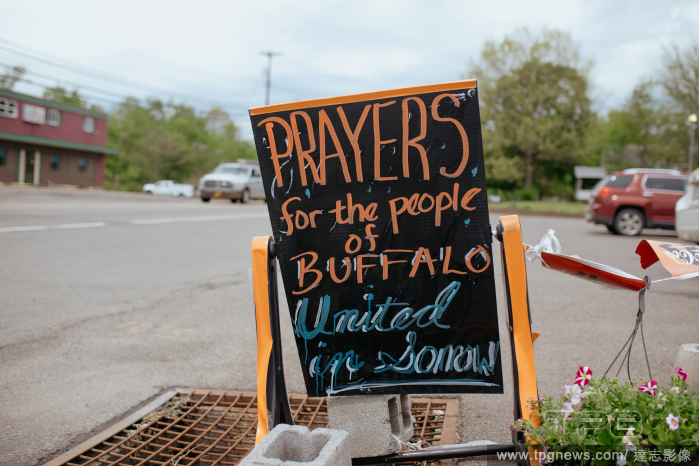 PRAYERS
for the people
of
BUFFALO
United
in Sorrow
TPG
www.tpgnews.com/ 達志影像